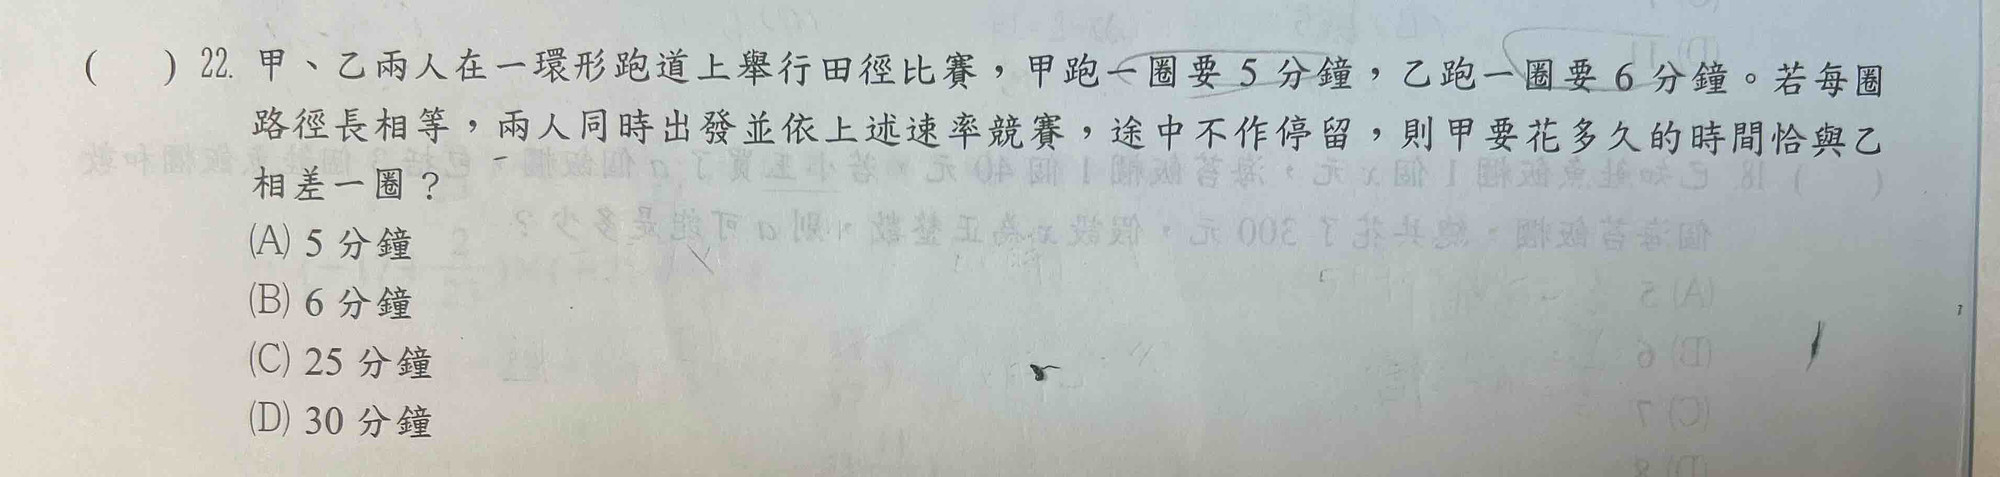 (　) 22. 甲、乙兩人在一環形跑道上舉行田徑比賽，甲跑一圈要 5 分鐘，乙跑一圈要 6 分鐘。若每圈
路徑長相等，兩人同時出發並依上述速率競賽，途中不作停留，則甲要花多久的時間恰與乙
相差一圈？
(A) 5 分鐘
(B) 6 分鐘
(C) 25 分鐘
(D) 30 分鐘